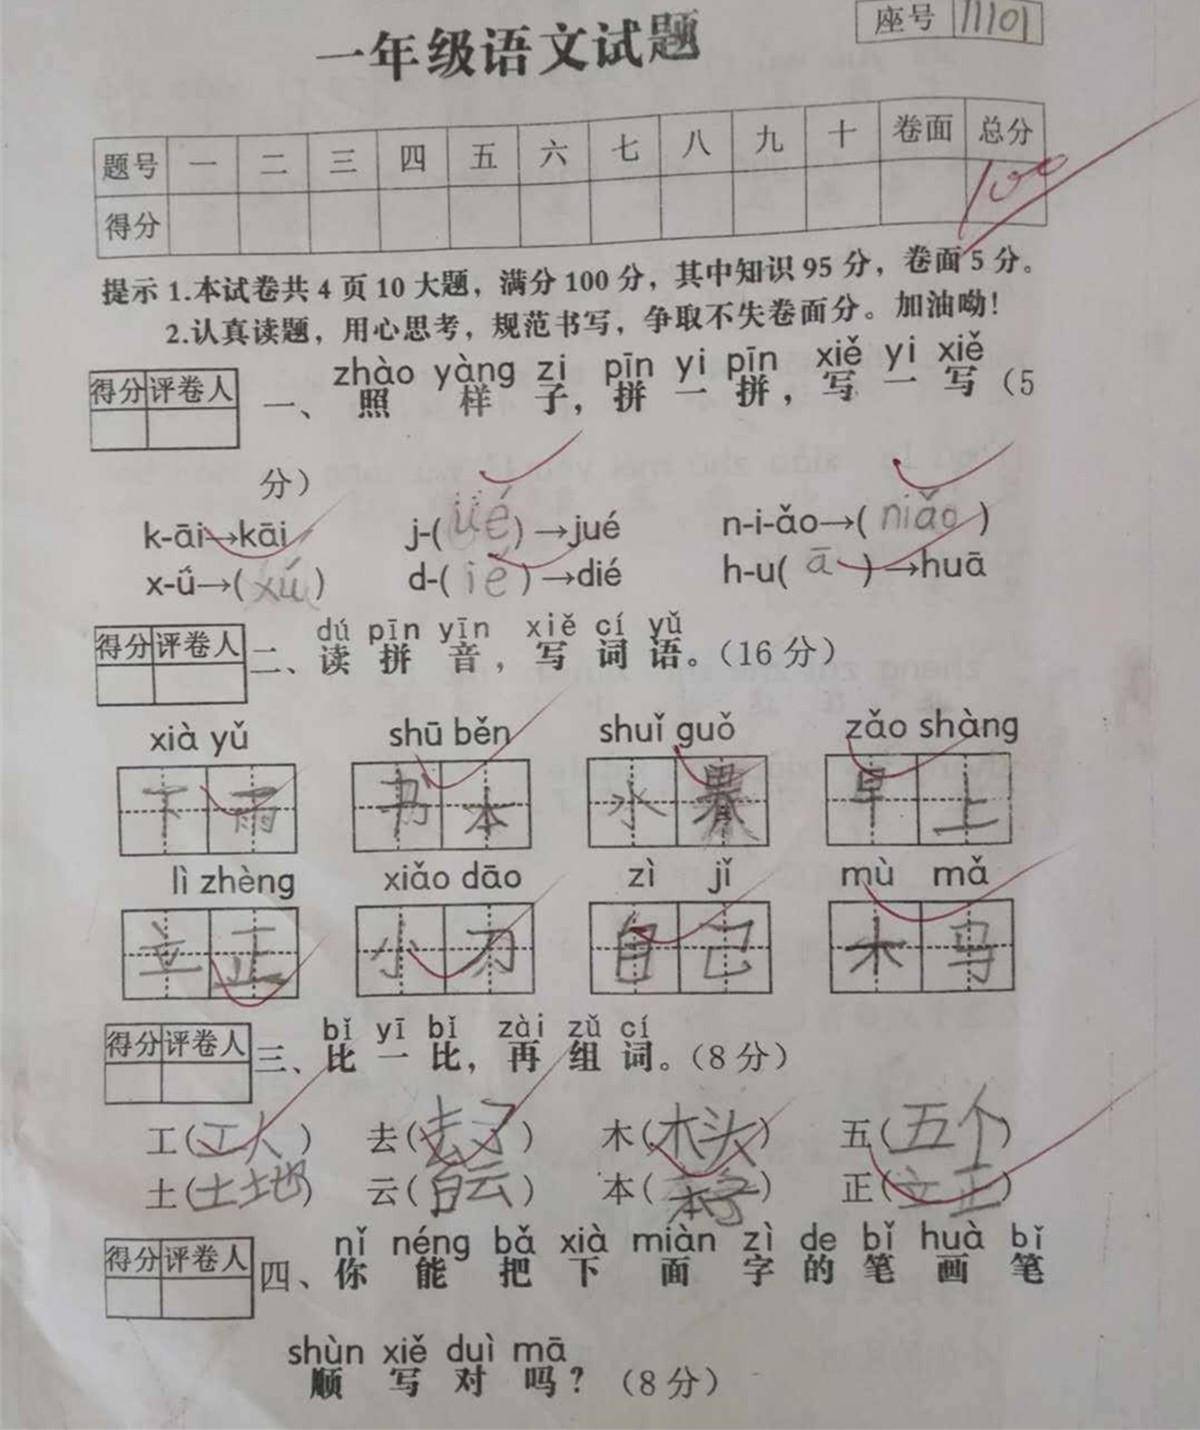 一年级语文试题
座号 11101
题号 一 二 三 四 五 六 七 八 九 十 卷面 总分
得分 100
提示 1.本试卷共4页10大题，满分100分，其中知识95分，卷面5分。
2.认真读题，用心思考，规范书写，争取不失卷面分。加油呦！
zhào yàng zi pīn yi pīn xiě yi xiě
得分 评卷人
一、照样子，拼一拼，写一写（5
分）
k-āi→kāi j-(üé)→jué n-i-ǎo→(niǎo)
x-ǘ→(xú) d-(ié)→dié h-u(ā)→huā
dú pīn yīn xiě cí yǔ
得分 评卷人
二、读拼音，写词语。（16分）
xià yǔ shū běn shuǐ guǒ zǎo shàng
下雨 书本 水果 早上
lì zhèng xiǎo dāo zì jǐ mù mǎ
立正 小刀 自己 木马
bǐ yī bǐ zài zǔ cí
得分 评卷人
三、比一比，再组词。（8分）
工(工人) 去(去了) 木(木头) 五(五个)
土(土地) 云(白云) 本(本子) 正(立正)
nǐ néng bǎ xià miàn zì de bǐ huà bǐ
得分 评卷人
四、你能把下面字的笔画笔
shùn xiě duì mā
顺写对吗？（8分）